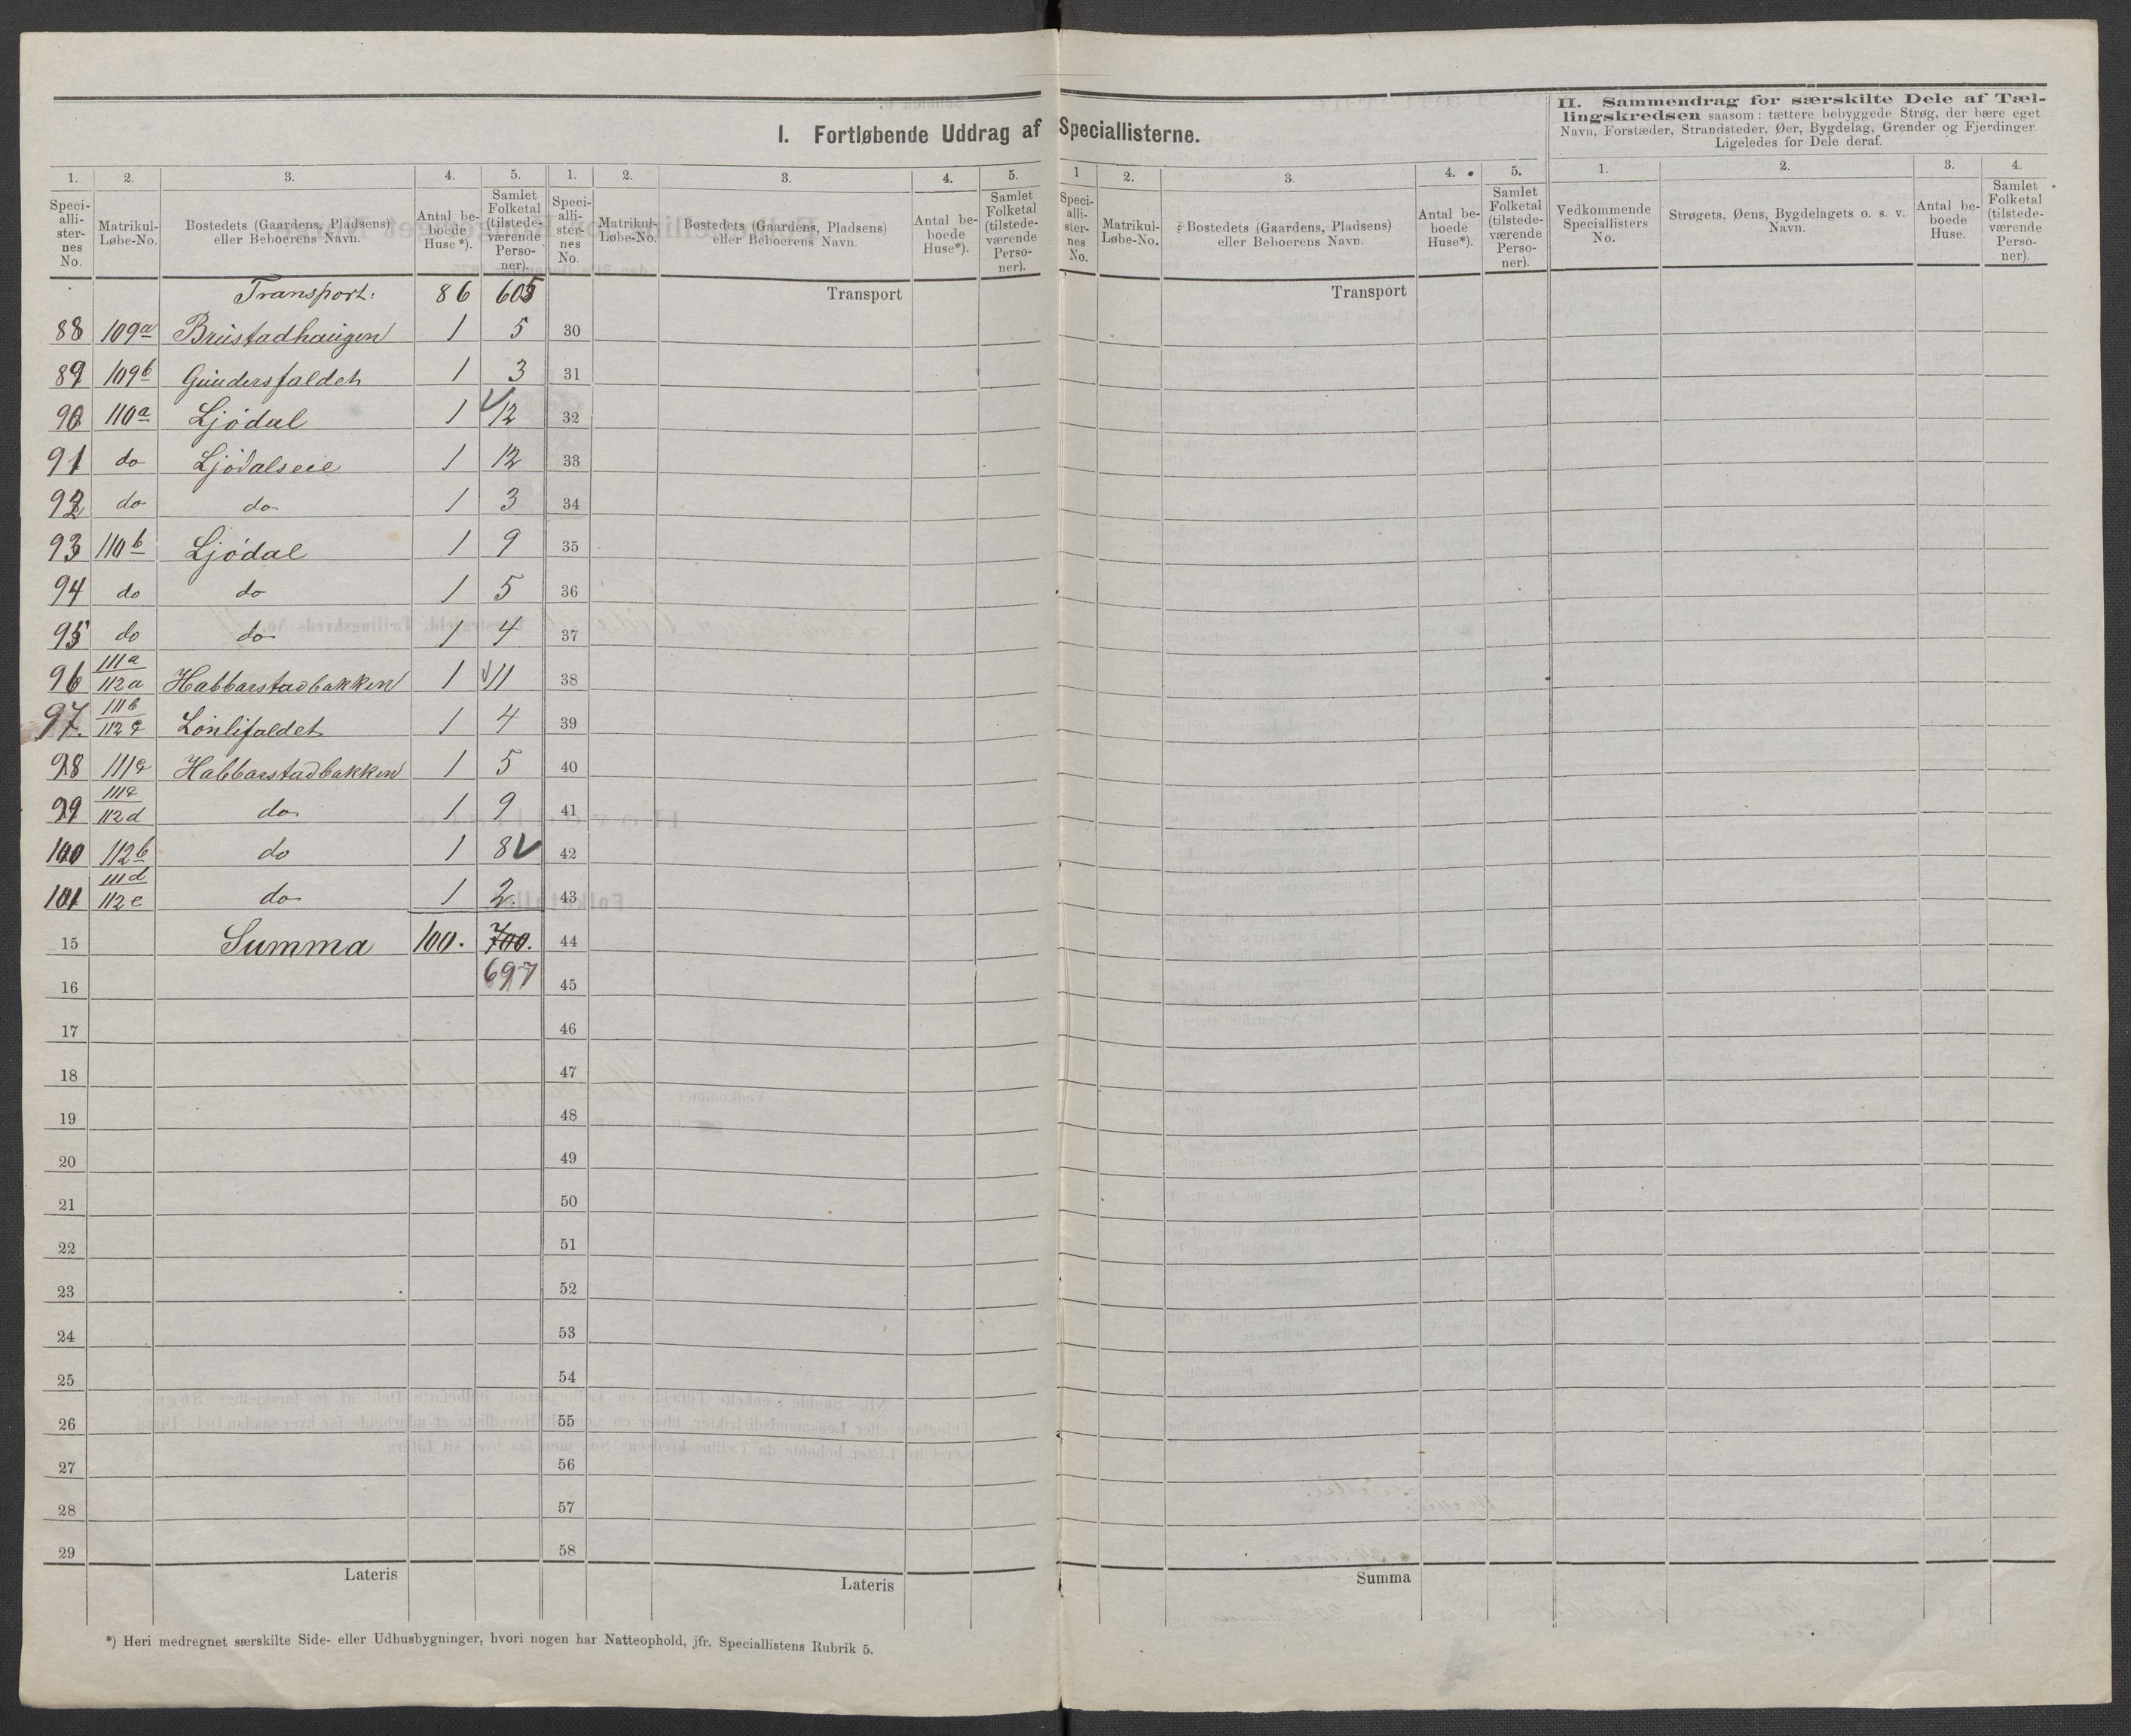 I. Fortløbende Uddrag af Speciallisterne.
II. Sammendrag for særskilte Dele af Tæl-
lingskredsen saasom: tættere bebyggede Strøg, der bære eget
Navn, Forstæder, Strandsteder, Øer, Bygdelag, Grender og Fjerdinger.
Ligeledes for Dele deraf.
1. 2. 3. 4. 5. 1. 2. 3. 4. 5. 1 2. 3. 4. 5. 1. 2. 3. 4.
Speci-alli-ster-nes No. Matrikul-Løbe-No. Bostedets (Gaardens, Pladsens) eller Beboerens Navn. Antal be-boede Huse*). Samlet Folketal (tilstede-værende Perso-ner).
Speci-alli-ster-nes No. Matrikul-Løbe-No. Bostedets (Gaardens, Pladsens) eller Beboerens Navn. Antal be-boede Huse*). Samlet Folketal (tilstede-værende Perso-ner).
Speci-alli-ster-nes No. Matrikul-Løbe-No. Bostedets (Gaardens, Pladsens) eller Beboerens Navn. Antal be-boede Huse*). Samlet Folketal (tilstede-værende Perso-ner).
Vedkommende Speciallisters No. Strøgets, Øens, Bygdelagets o. s. v. Navn. Antal be-boede Huse. Samlet Folketal (tilstede-værende Perso-ner).
Transport: 86 605 Transport Transport
88 109a Brustadhaugen 1 5 30
89 109b Gundersfaldet 1 3 31
90 110a Ljødal 1 12 32
91 do Ljødalseie 1 12 33
92 do do 1 3 34
93 110b Ljødal 1 9 35
94 do do 1 5 36
95 do do 1 4 37
96 111a 112a Habbarstadbakken 1 11 38
97. 111b 112c Lønlifaldet 1 4 39
98 111c Habbarstadbakken 1 5 40
99 112d do 1 9 41
100 112b do 1 8 42
101 111d 112e do 1 2. 43
15 Summa 100. 700. 44
16 697 45
17 46
18 47
19 48
20 49
21 50
22 51
23 52
24 53
25 54
26 55
27 56
28 57
29 58
Lateris Lateris Summa
*) Heri medregnet særskilte Side- eller Udhusbygninger, hvori nogen har Natteophold, jfr. Speciallistens Rubrik 5.